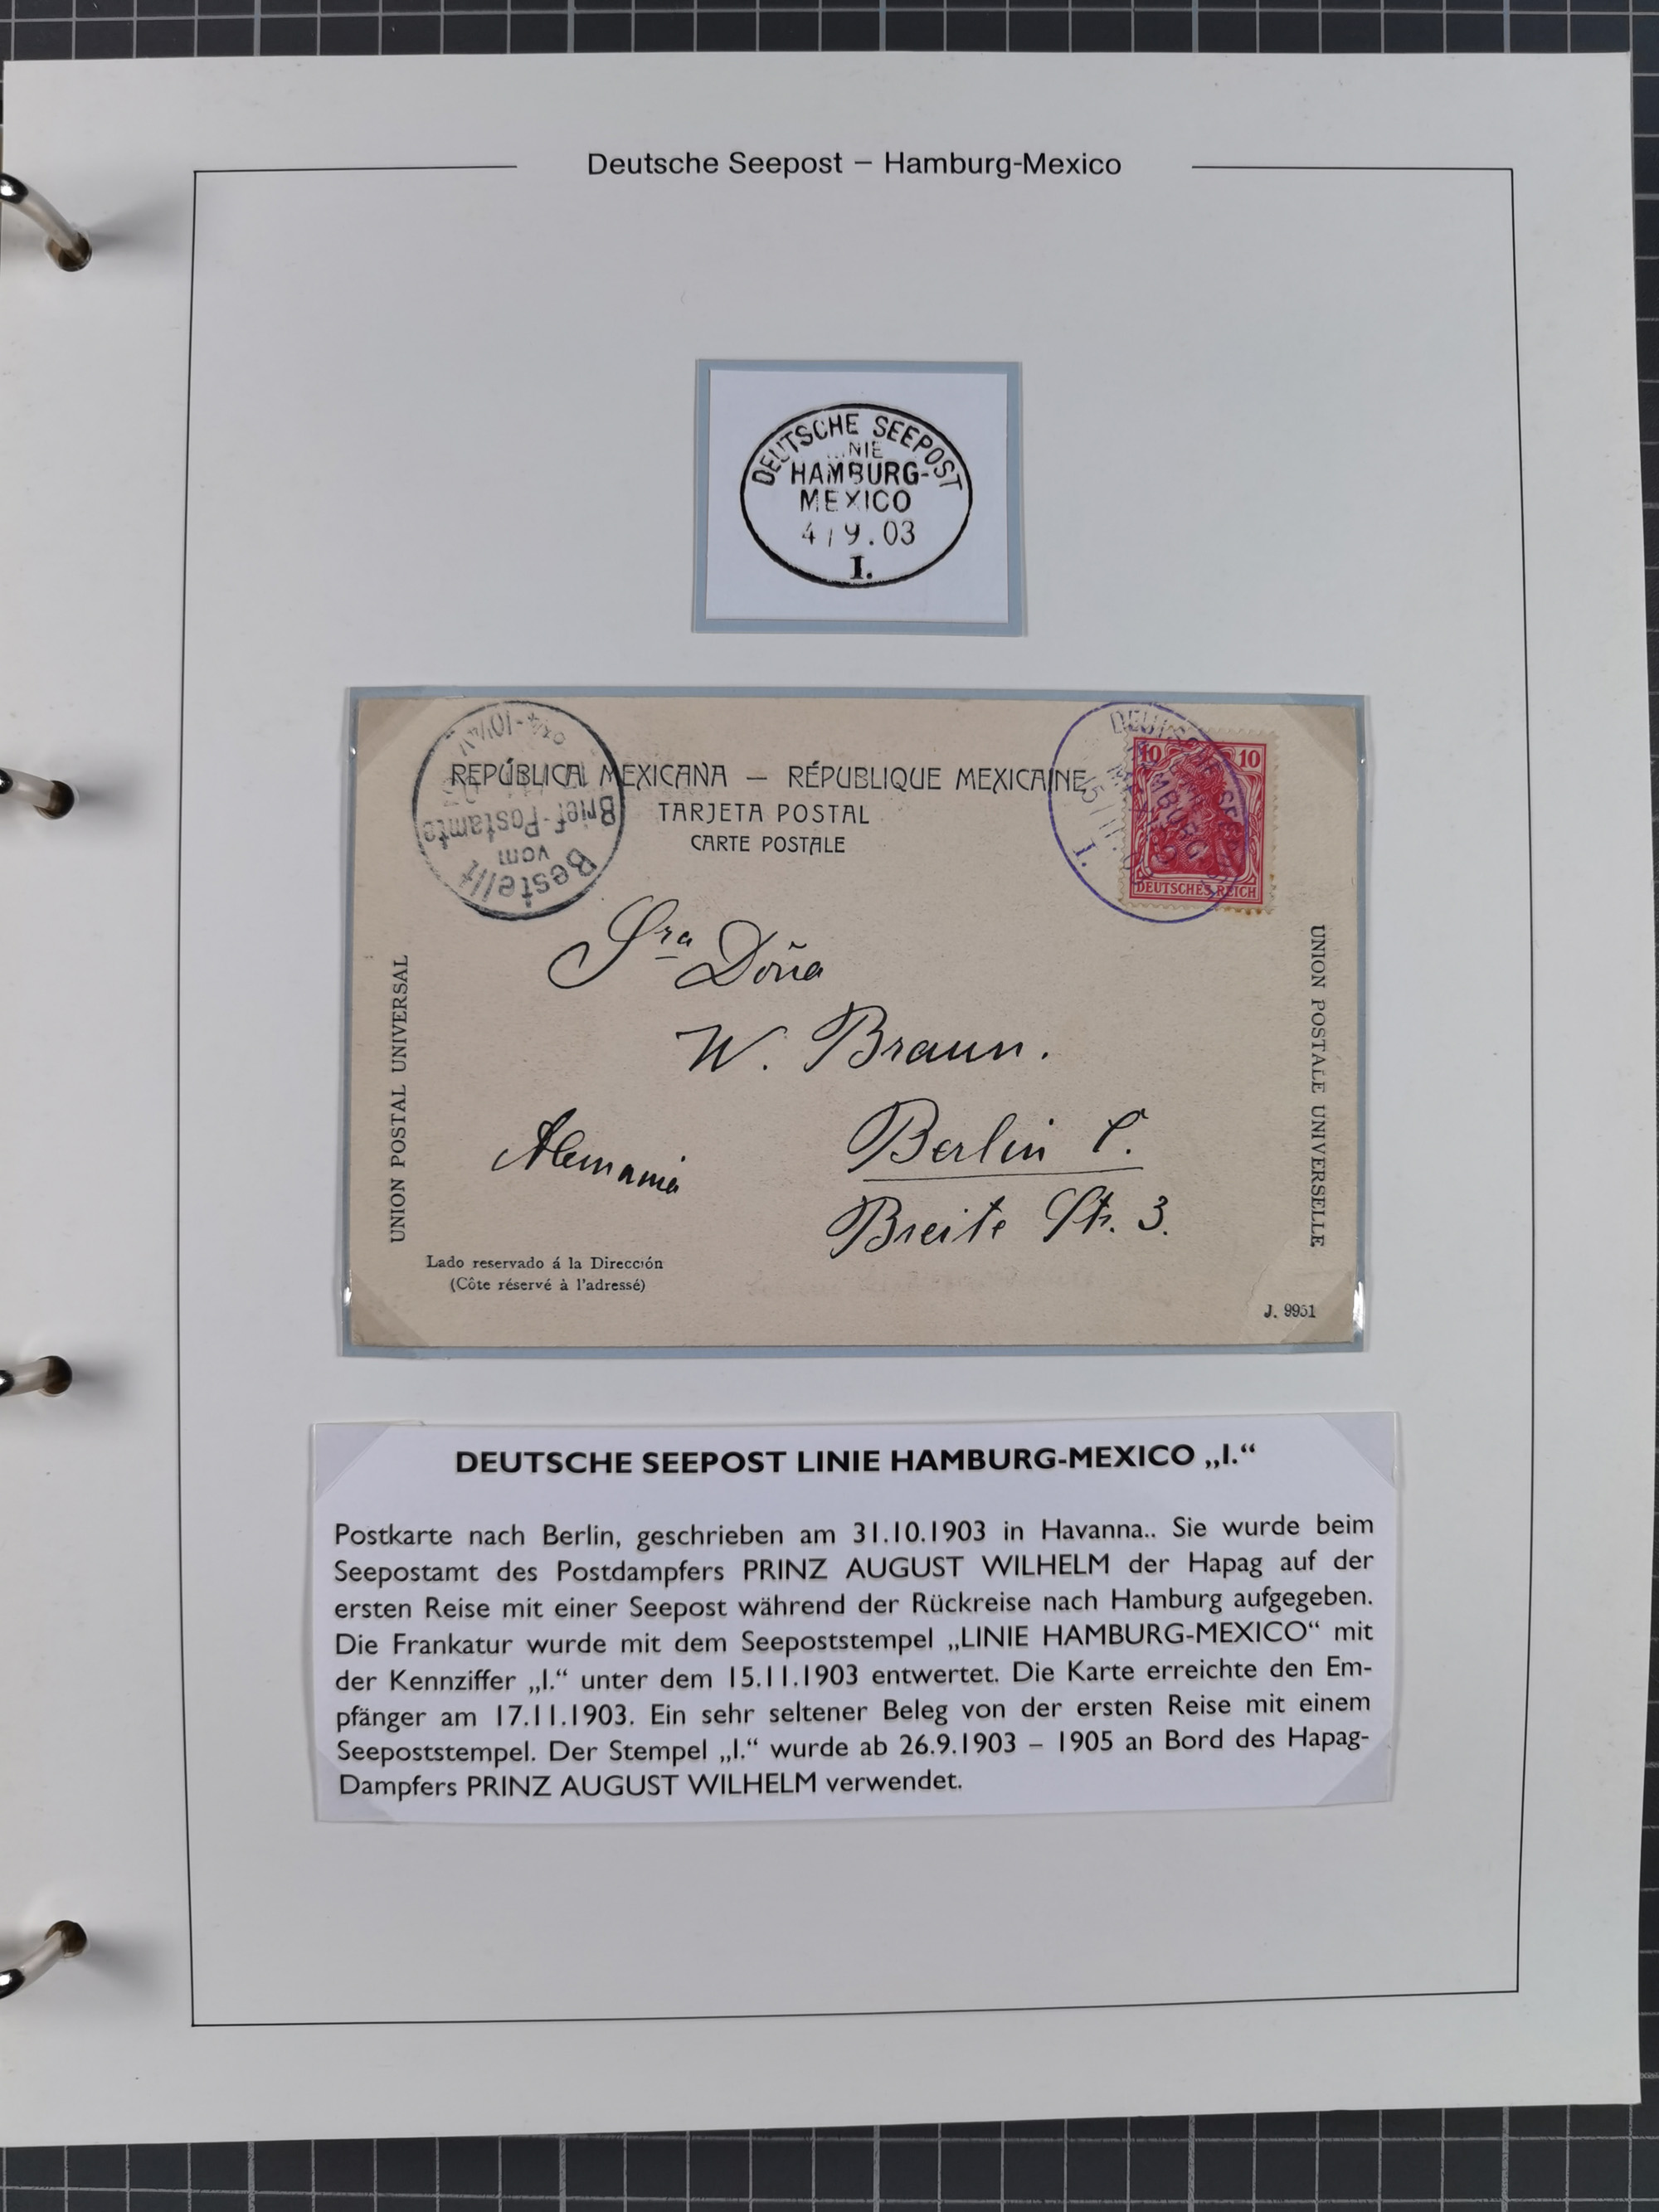 Deutsche Seepost – Hamburg-Mexico
DEUTSCHE SEEPOST
HAMBURG-
MEXICO
4/9.03
I.
REPÚBLICA MEXICANA — RÉPUBLIQUE MEXICAINE
TARJETA POSTAL
CARTE POSTALE
Bestellt
vom
Brief-Postamte
10 10
DEUTSCHES REICH
DEUTSCHE SEEPOST
HAMBURG
MEXICO
15/11.03
I.
Sra Doña
W. Braun.
Alemania
Berlin C.
Breite Str. 3.
UNION POSTAL UNIVERSAL
UNION POSTALE UNIVERSELLE
Lado reservado á la Dirección
(Côte réservé à l'adressé)
J. 9951
DEUTSCHE SEEPOST LINIE HAMBURG-MEXICO „I.“
Postkarte nach Berlin, geschrieben am 31.10.1903 in Havanna.. Sie wurde beim
Seepostamt des Postdampfers PRINZ AUGUST WILHELM der Hapag auf der
ersten Reise mit einer Seepost während der Rückreise nach Hamburg aufgegeben.
Die Frankatur wurde mit dem Seepoststempel „LINIE HAMBURG-MEXICO“ mit
der Kennziffer „I.“ unter dem 15.11.1903 entwertet. Die Karte erreichte den Em-
pfänger am 17.11.1903. Ein sehr seltener Beleg von der ersten Reise mit einem
Seepoststempel. Der Stempel „I.“ wurde ab 26.9.1903 – 1905 an Bord des Hapag-
Dampfers PRINZ AUGUST WILHELM verwendet.